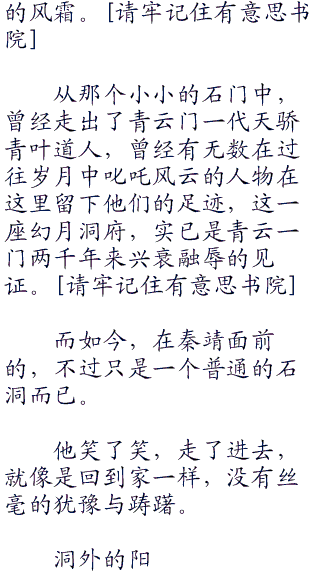 的风霜。[请牢记住有意思书
院]
从那个小小的石门中，
曾经走出了青云门一代天骄
青叶道人，曾经有无数在过
往岁月中叱吒风云的人物在
这里留下他们的足迹，这一
座幻月洞府，实已是青云一
门两千年来兴衰融辱的见
证。[请牢记住有意思书院]
而如今，在秦靖面前
的，不过只是一个普通的石
洞而已。
他笑了笑，走了进去，
就像是回到家一样，没有丝
毫的犹豫与踌躇。
洞外的阳